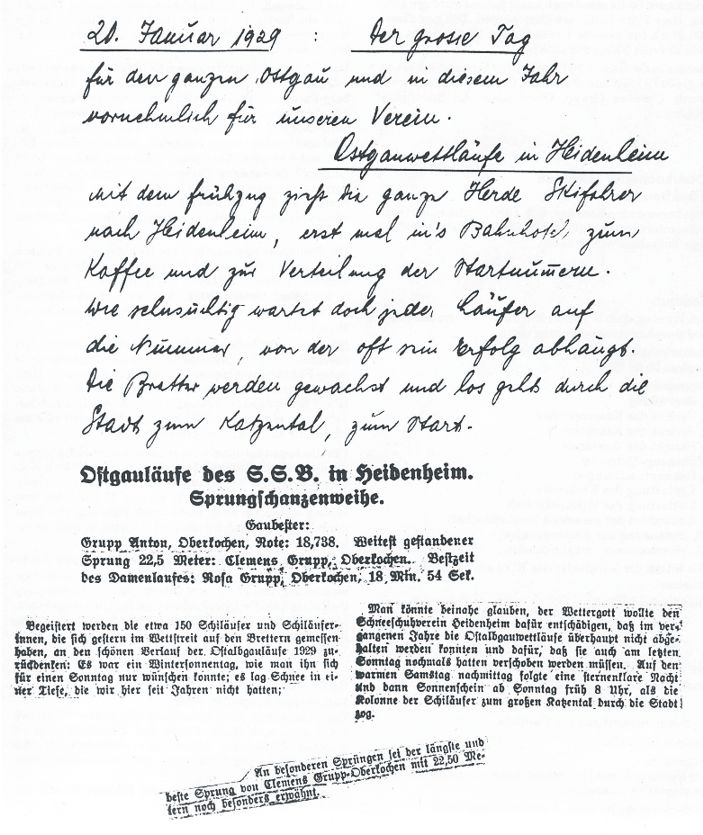 20. Januar 1929 : Der grosse Tag
für den ganzen Ostgau und in diesem Jahr
vornehmlich für unseren Verein.
Ostgauwettläufe in Heidenheim
Mit dem Frühzug zieht die ganze Herde Skifahrer
nach Heidenheim, erst mal in's Bahnhotel, zum
Kaffee und zur Verteilung der Startnummern.
Wie sehnsüchtig wartet doch jeder Läufer auf
die Nummer, von der oft sein Erfolg abhängt.
Die Bretter werden gewachst und los gehts durch die
Stadt zum Katzental, zum Start.
Ostgauläufe des S.S.V. in Heidenheim.
Sprungschanzenweihe.
Gaubester:
Grupp Anton, Oberkochen, Note: 18,738. Weitest gestandener
Sprung 22,5 Meter: Clemens Grupp, Oberkochen. Bestzeit
des Damenlaufes: Rosa Grupp, Oberkochen, 18 Min. 54 Sek.
Begeistert werden die etwa 150 Schiläufer und Schiläufer-
innen, die sich gestern im Wettstreit auf den Brettern gemessen
haben, an den schönen Verlauf der Ostalbgauläufe 1929 zu-
rückdenken: Es war ein Wintersonnentag, wie man ihn sich
für einen Sonntag nur wünschen konnte; es lag Schnee in ei-
ner Tiefe, die wir hier seit Jahren nicht hatten;
Man könnte beinahe glauben, der Wettergott wollte den
Schneeschuhverein Heidenheim dafür entschädigen, daß im ver-
gangenen Jahre die Ostalbgauwettläufe überhaupt nicht abge-
halten werden konnten und dafür, daß sie auch am letzten
Sonntag nochmals hatten verschoben werden müssen. Auf den
warmen Samstag nachmittag folgte eine sternenklare Nacht
und dann Sonnenschein ab Sonntag früh 8 Uhr, als die
Kolonne der Schiläufer zum großen Katzental durch die Stadt
zog.
An besonderen Sprüngen sei der längste und
beste Sprung von Clemens Grupp-Oberkochen mit 22,50 Me-
tern noch besonders erwähnt.